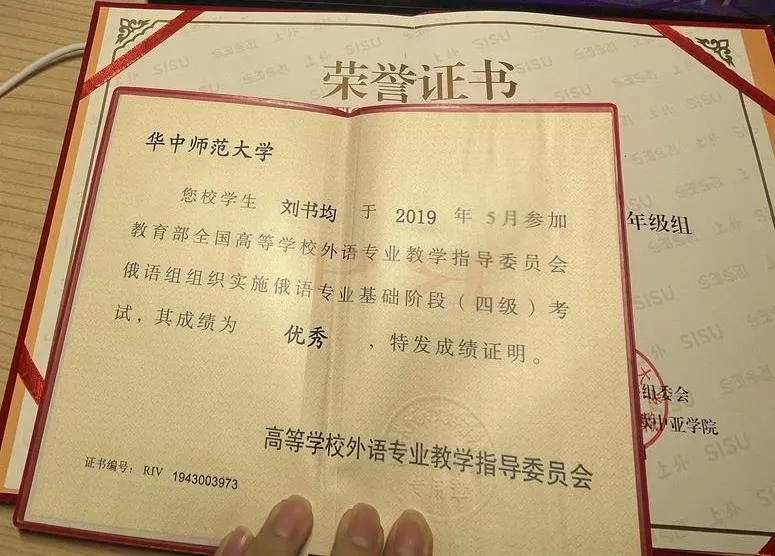 荣誉证书
华中师范大学
您校学生 刘书均 于 2019 年 5月参加
教育部全国高等学校外语专业教学指导委员会
俄语组组织实施俄语专业基础阶段（四级）考
试，其成绩为 优秀 ，特发成绩证明。
高等学校外语专业教学指导委员会
证书编号：RIV 1943003973
年级组
组委会
中亚学院
SISU